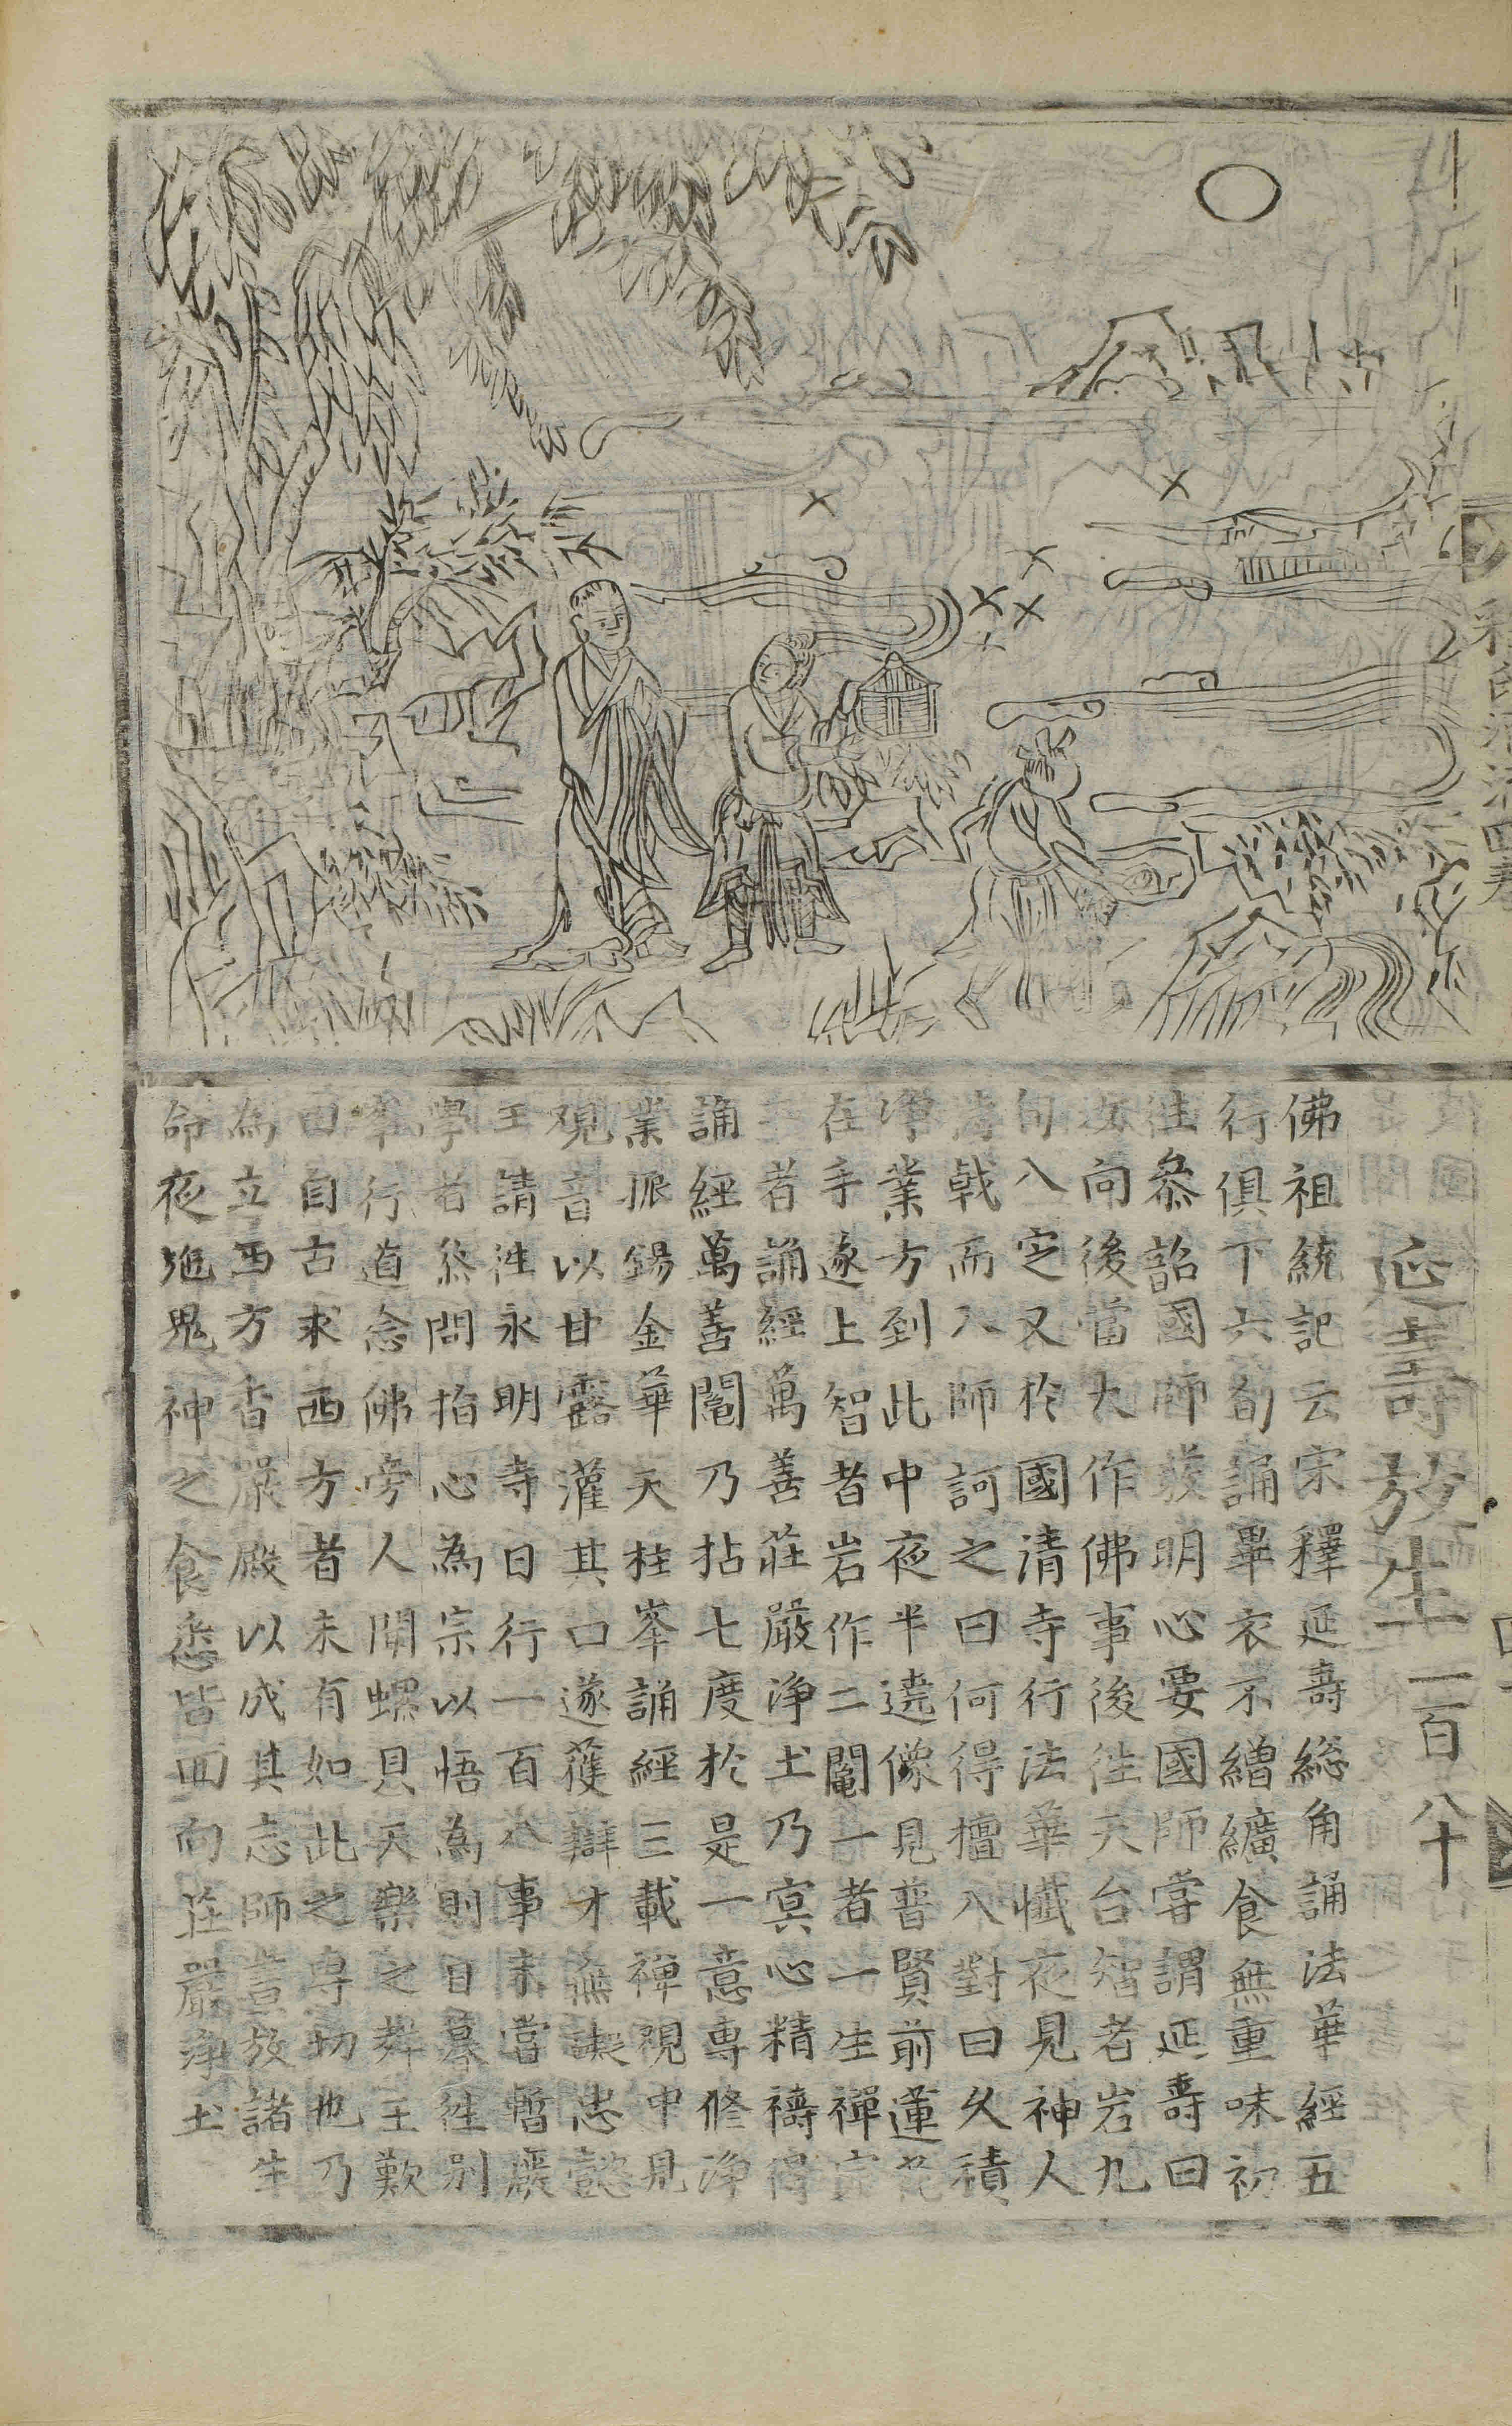 延壽放生一百八十
佛祖統記云宋釋延壽総角誦法華經五
行俱下六旬誦畢衣不繒纊食無重味初
往叅詔國師發明心要國師嘗謂延壽曰
汝向後當大作佛事後往天台智者岩九
旬入定又於國清寺行法華懺夜見神人
持戟而入師訶之曰何得擅入對曰久積
淨業方到此中夜半遶像見普賢前蓮花
在手遂上智者岩作二鬮一者一生禪定
二者誦經萬善莊嚴淨土乃冥心精禱得
誦經萬善鬮乃拈七度於是一意專修淨
業振錫金華天柱峯誦經三載禪觀中見
觀音以甘露灌其口遂獲辯才無礙忠懿
王請徃永明寺日行一百八事未甞暫廢
學者叅問指心為宗以悟為則日暮徃別
峯行道念佛旁人聞螺貝天樂之聲王歎
曰自古求西方者未有如此之專切也乃
為立西方香嚴殿以成其志師嘗放諸生
命夜施鬼神之食悉皆回向莊嚴淨土